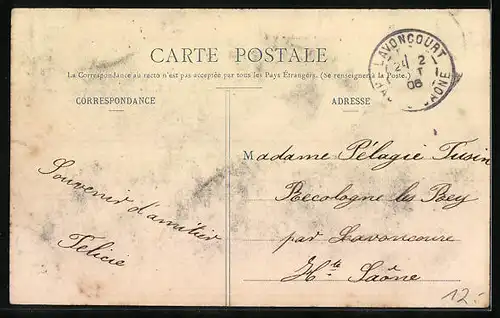 CARTE POSTALE
La Correspondance au recto n'est pas acceptée par tous les Pays Étrangers. (Se renseigner à la Poste.)
CORRESPONDANCE
ADRESSE
LAVONCOURT
24 2
06
SAÔNE
Souvenir d'amitié
Félicie
Madame Pélagie Tusin
Recologne les Rey
par Lavoncourt
Hte Saône
12.-